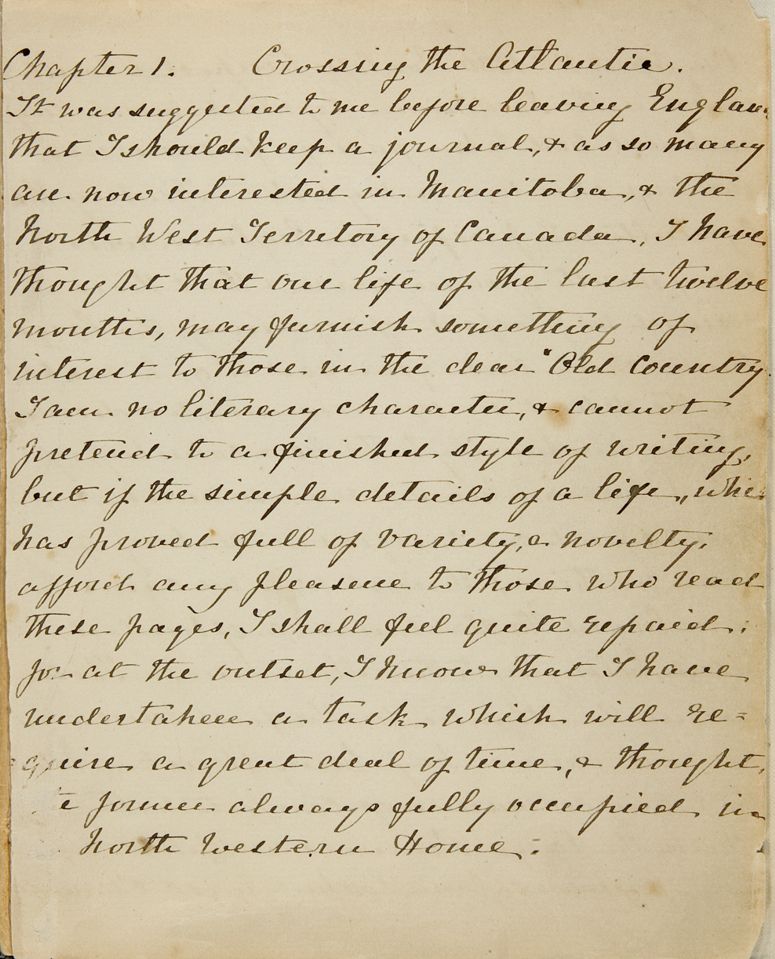 Chapter 1. Crossing the Atlantic.
It was suggested to me before leaving England
that I should keep a journal, & as so many
are now interested in Manitoba, & the
North West Territory of Canada, I have
thought that our life of the last twelve
months, may furnish something of
interest to those in the dear "Old Country
I am no literary character, & cannot
pretend to a finished style of writing,
but if the simple details of a life, whi
has proved full of variety, & novelty,
afford any pleasure to those who read
these pages, I shall feel quite repaid;
for at the outset, I know that I have
undertaken a task which will re=
quire a great deal of time, & thought,
former always fully occupied in
North Western Home.